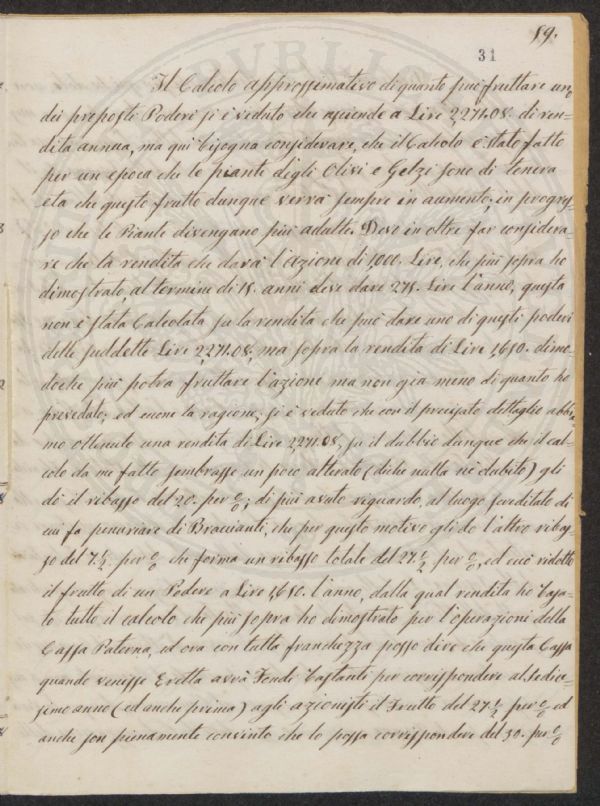 19.
31
Il Calcolo approssimativo di quanto può fruttare uno
dei preposti Poderi si è veduto che ascende a Lire 2,271.08. di ren-
dita annua, ma qui bisogna considerare, che il Calcolo è stato fatto
per un epoca che le piante degli Olivi e Gelzi sono di tenera
età che questo frutto dunque verrà sempre in aumento, in progres-
so che le Piante divengano più adulte. Devo in oltre far considera-
re che la rendita che darà l'azione di 1,000. Lire, che più sopra ho
dimostrato, al termine di 15. anni deve dare 275. Lire l'anno, questa
non è stata Calcolata su la rendita che può dare uno di questi poderi
delle suddette Lire 2,271.08, ma sopra la rendita di Lire 1,650. dimo-
doche più potrà fruttare l'azione ma non già meno di quanto ho
preveduto; ed eccone la ragione; si è veduto che con il precisato dettaglio abbia-
mo ottenuto una rendita di Lire 2,271.08, su il dubbio dunque che il cal-
colo da me fatto sembrasse un poco alterato (diche nulla nè dubito) gli
dò il ribasso del 20. per %; di più avuto riguardo, al luogo screditato di
cui fa penuriare di Bracianti, che per questo motivo gli do l'altro ribas-
so del 7.½ per % che forma un ribasso totale del 27.½ per %, ed ecco ridotto
il frutto di un Podere a Lire 1,650. l'anno, dalla qual rendita ho basa-
to tutto il calcolo che più sopra ho dimostrato per l'operazioni della
Cassa Paterna, ed ora con tutta franchezza posso dire che questa Cassa
quando venisse Eretta avrà Fondi bastanti per corrispondere al Sedice-
simo anno (ed anche prima) agli azionisti il Frutto del 27.½ per % ed
anche son pienamente convinto che lo possa corrispondere del 30. per %